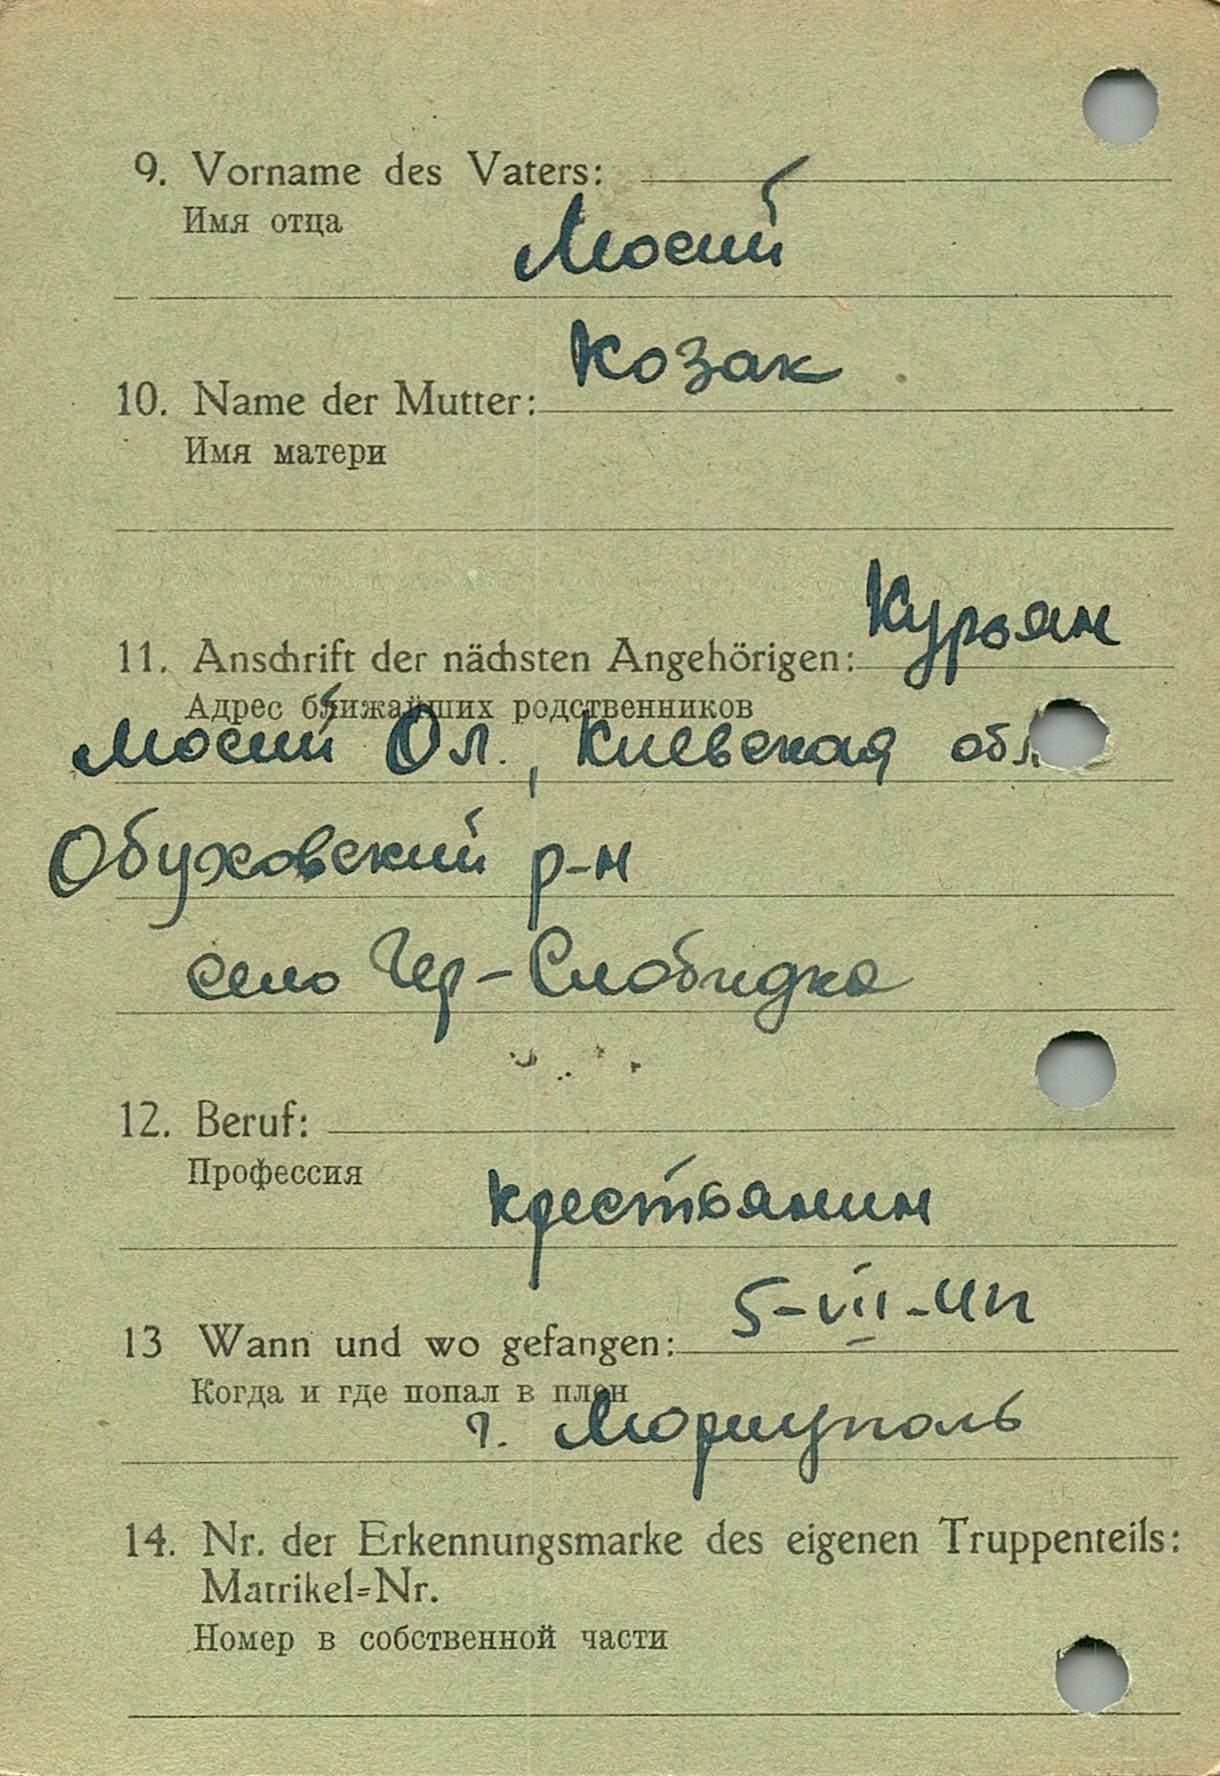 9. Vorname des Vaters:
Имя отца
Мосий
Козак
10. Name der Mutter:
Имя матери
Курьян
11. Anschrift der nächsten Angehörigen:
Адрес ближайших родственников
Мосий Ол., Киевская обл
Обуховский р-н
село Гер-Слобидка
12. Beruf:
Профессия
крестьянин
5-VII-
13 Wann und wo gefangen:
Когда и где попал в плен
г. Мориуполь
14. Nr. der Erkennungsmarke des eigenen Truppenteils:
Matrikel=Nr.
Номер в собственной части